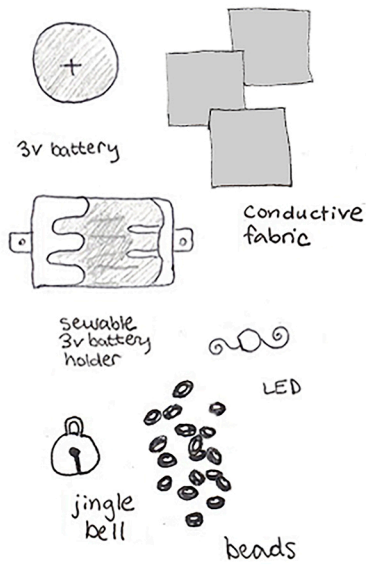 +
3v battery
conductive
fabric
sewable
3v battery
holder
LED
jingle
bell
beads